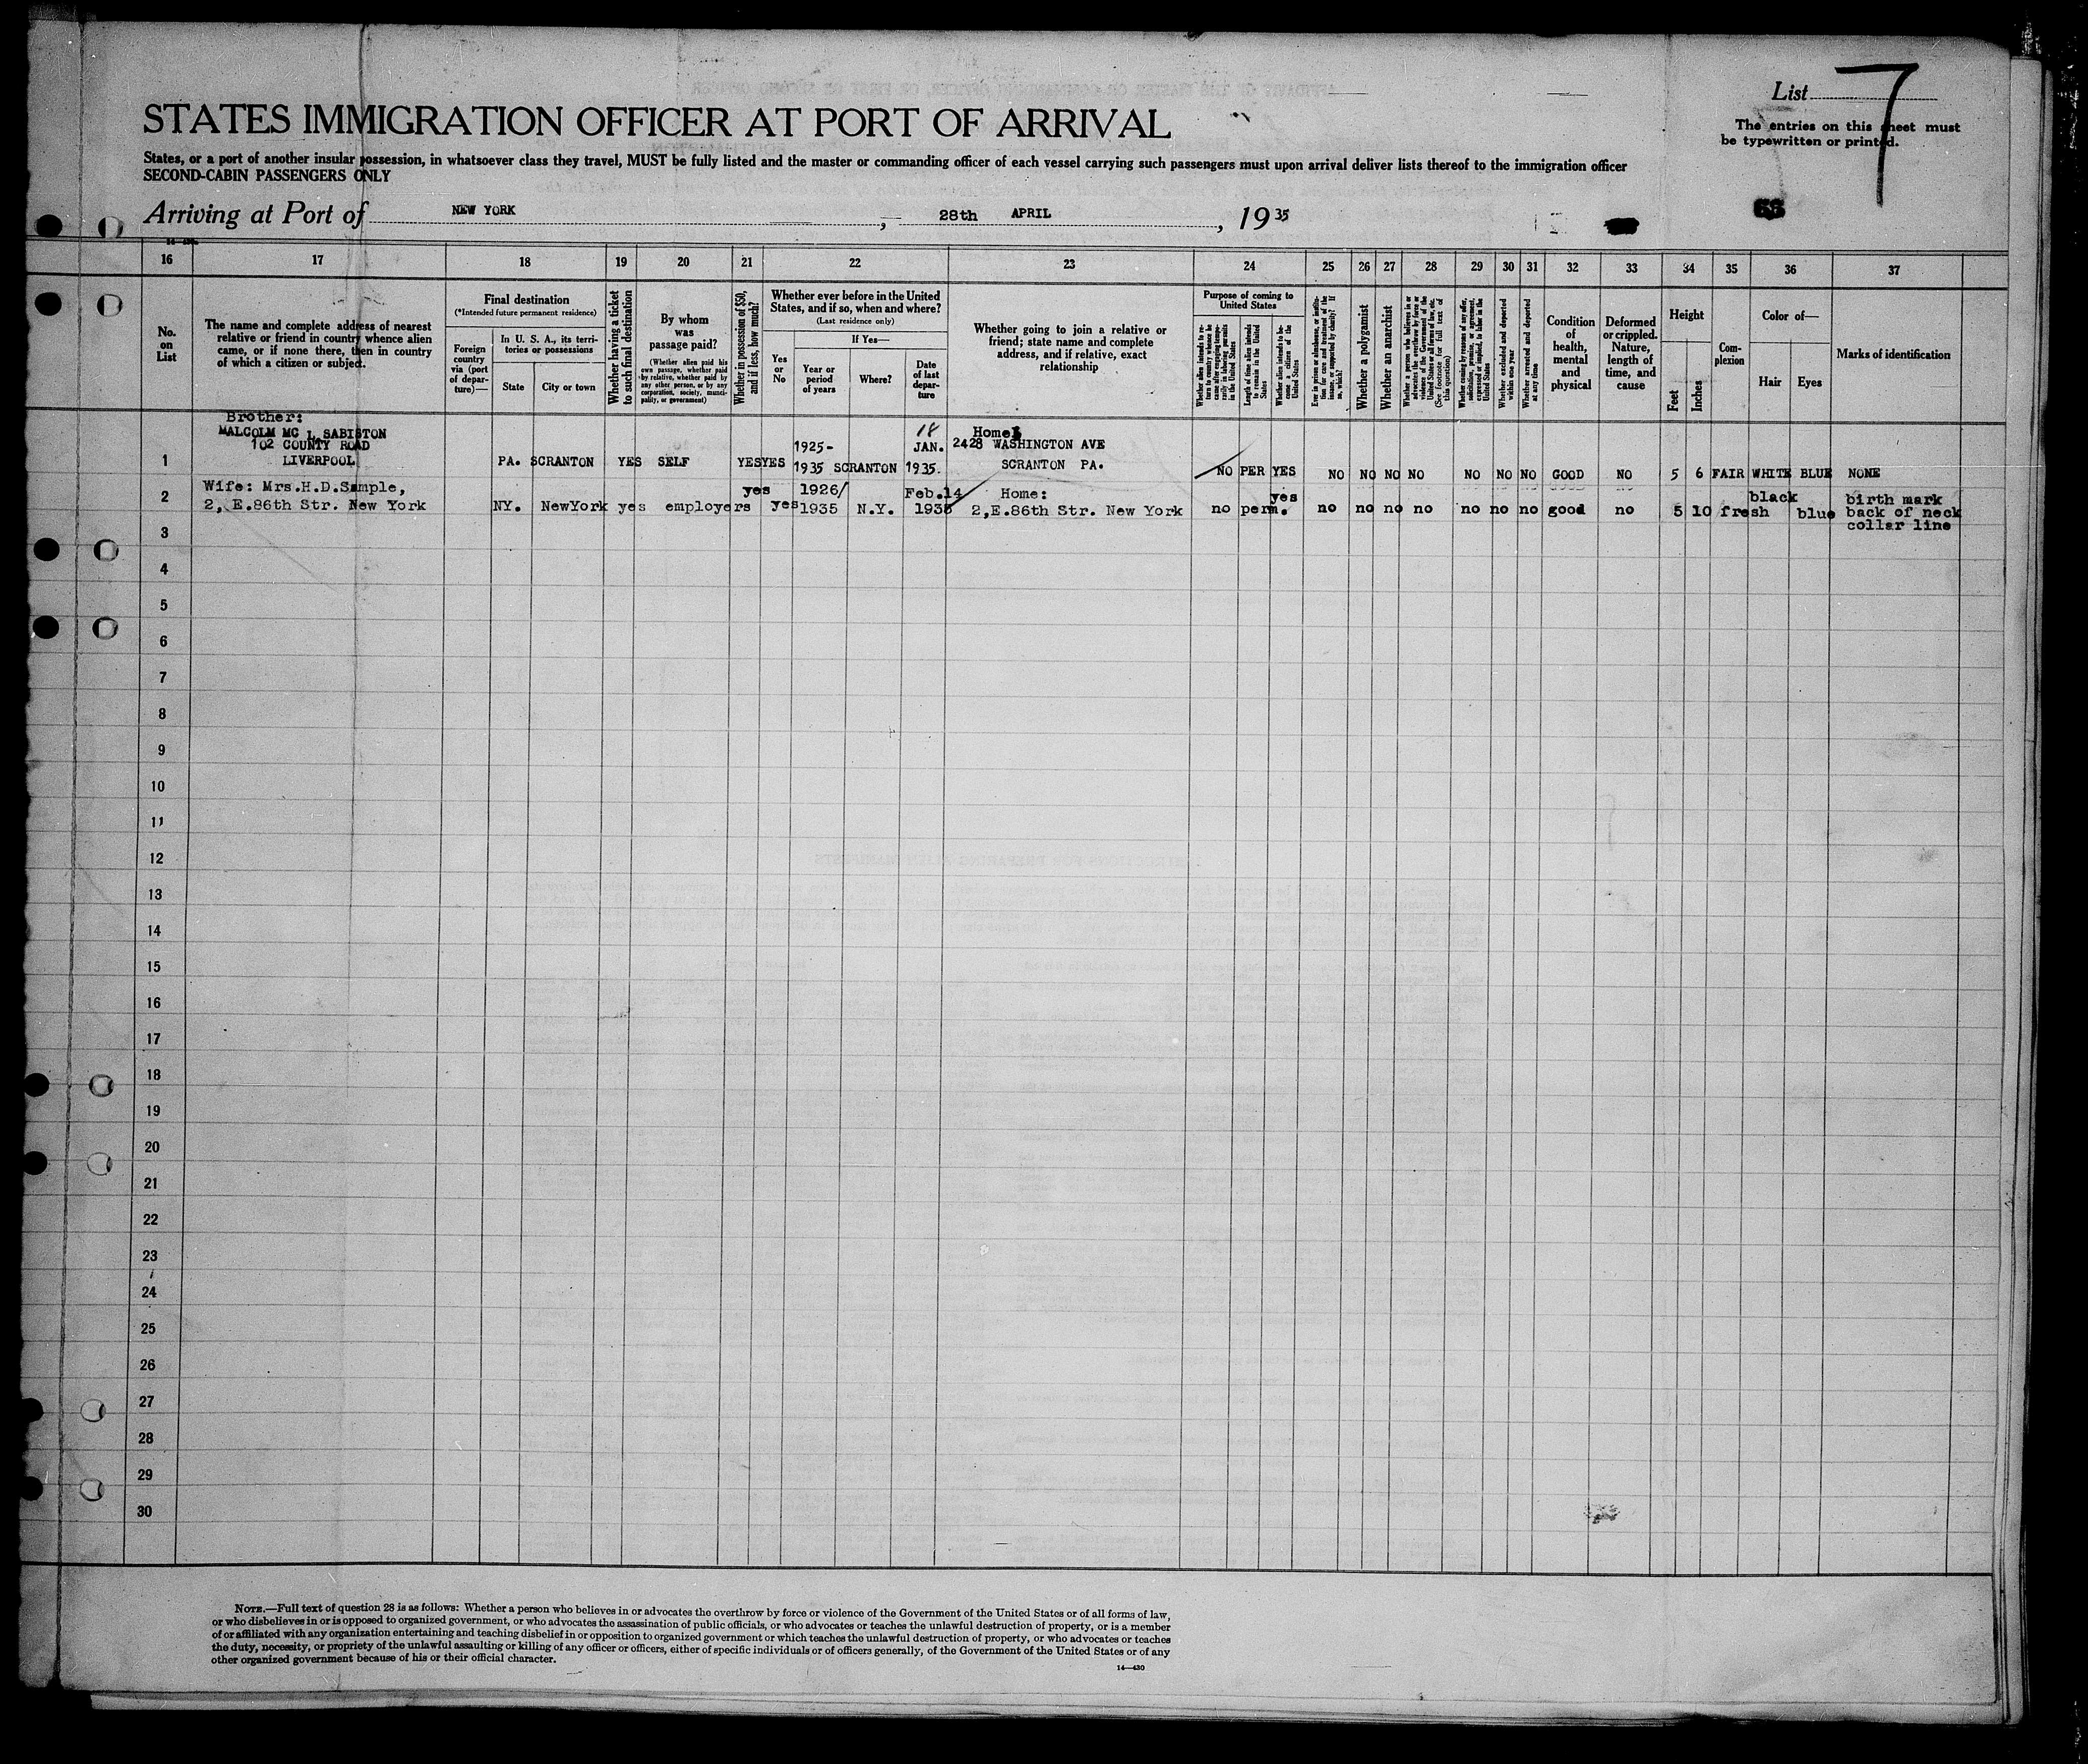 List 7
STATES IMMIGRATION OFFICER AT PORT OF ARRIVAL
The entries on this sheet must
be typewritten or printed.
States, or a port of another insular possession, in whatsoever class they travel, MUST be fully listed and the master or commanding officer of each vessel carrying such passengers must upon arrival deliver lists thereof to the immigration officer
SECOND-CABIN PASSENGERS ONLY
Arriving at Port of NEW YORK, 28th APRIL, 1935
16 17 18 19 20 21 22 23 24 25 26 27 28 29 30 31 32 33 34 35 36 37
No. on List
The name and complete address of nearest
relative or friend in country whence alien
came, or if none there, then in country
of which a citizen or subject.
Final destination
(*Intended future permanent residence)
Foreign
country
via (port
of depar-
ture)—
In U. S. A., its terri-
tories or possessions
State
City or town
Whether having a ticket
to such final destination
By whom
was
passage paid?
(Whether alien paid his
own passage, whether paid
by relative, whether paid by
any other person, or by any
corporation, society, munici-
pality, or government)
Whether in possession of $50,
and if less, how much?
Whether ever before in the United
States, and if so, when and where?
(Last residence only)
Yes
or
No
If Yes—
Year or
period
of years
Where?
Date
of last
depar-
ture
Whether going to join a relative or
friend; state name and complete
address, and if relative, exact
relationship
Purpose of coming to
United States
Length of time alien intends
to remain in the United
States
Whether alien intends to be-
come a citizen of the
United States
Whether a polygamist
Whether an anarchist
Whether excluded and deported
within one year
Whether arrested and deported
at any time
Condition
of
health,
mental
and
physical
Deformed
or crippled.
Nature,
length of
time, and
cause
Height
Feet
Inches
Com-
plexion
Color of—
Hair
Eyes
Marks of identification
Brother:
MALCOLM MC L. SABISTON
102 COUNTY ROAD
LIVERPOOL
1 PA. SCRANTON YES SELF YES YES 1925-1935 SCRANTON 18 JAN. 1935. Home: 2428 WASHINGTON AVE SCRANTON PA. NO PER YES NO NO NO NO NO NO NO GOOD NO 5 6 FAIR WHITE BLUE NONE
Wife: Mrs.H.D.Sample,
2,E.86th Str. New York
2 NY. NewYork yes employers yes yes 1926/1935 N.Y. Feb.14 1935 Home: 2,E.86th Str. New York no perm. yes no no no no no no no good no 5 10 fresh black blue birth mark back of neck collar line
3
4
5
6
7
8
9
10
11
12
13
14
15
16
17
18
19
20
21
22
23
24
25
26
27
28
29
30
NOTE.—Full text of question 28 is as follows: Whether a person who believes in or advocates the overthrow by force or violence of the Government of the United States or of all forms of law,
or who disbelieves in or is opposed to organized government, or who advocates the assassination of public officials, or who advocates or teaches the unlawful destruction of property, or is a member
of or affiliated with any organization entertaining and teaching disbelief in or opposition to organized government or which teaches the unlawful destruction of property, or who advocates or teaches
the duty, necessity, or propriety of the unlawful assaulting or killing of any officer or officers, either of specific individuals or of officers generally, of the Government of the United States or of any
other organized government because of his or their official character.
14—430